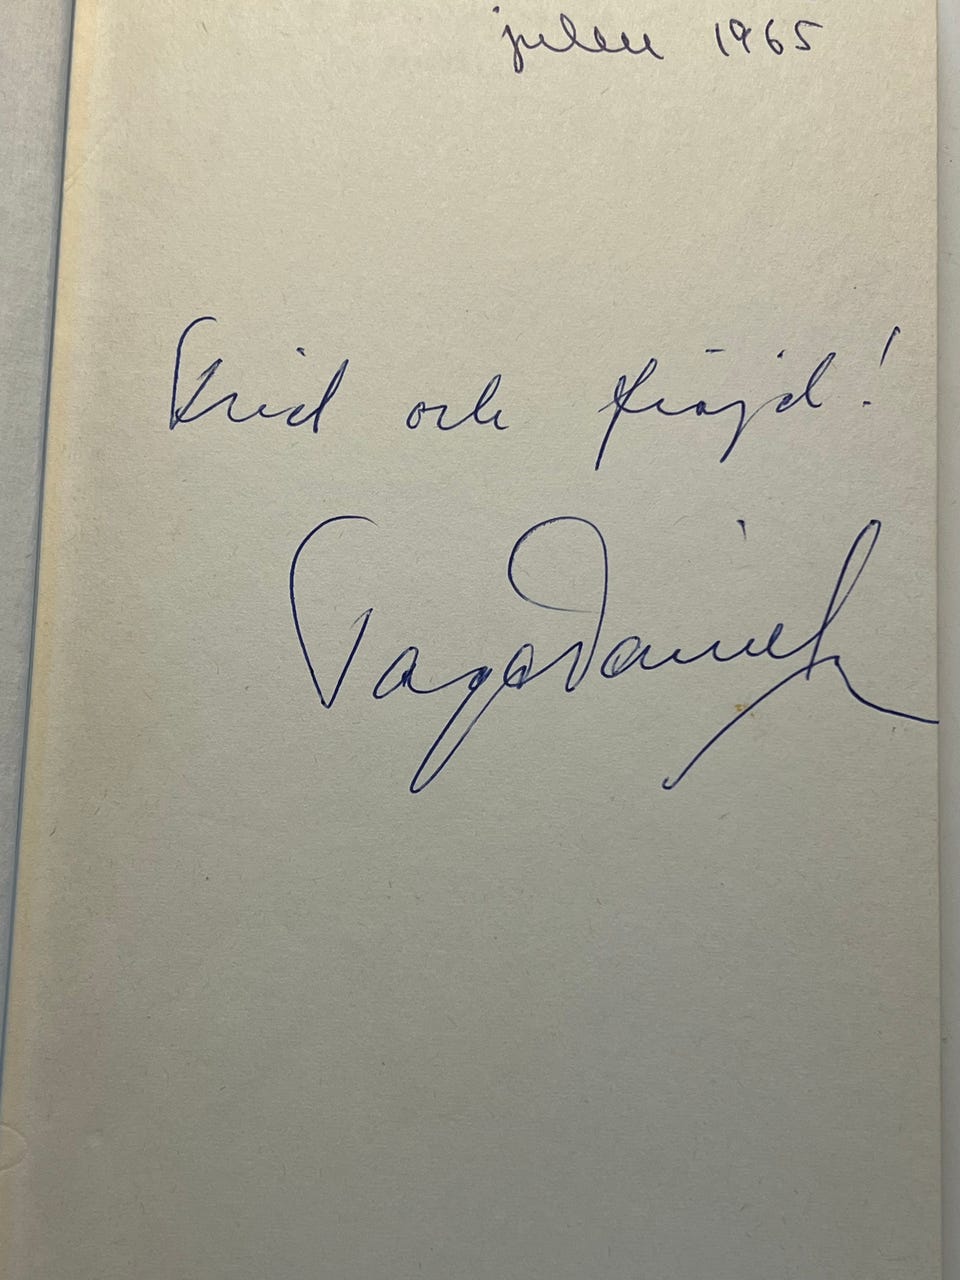 julen 1965
Frid och fröjd!
Tage Danielsson